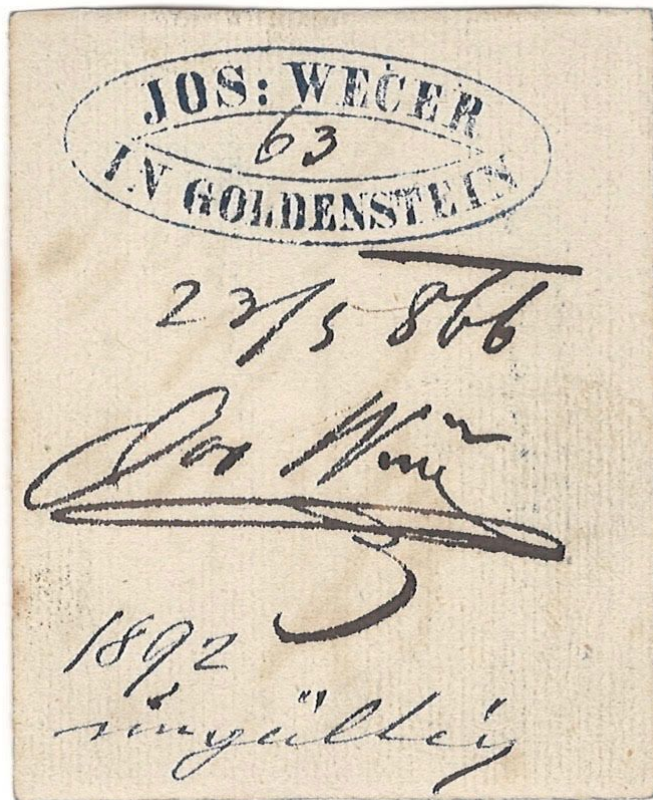 JOS: WEČER
63
IN GOLDENSTEIN
23/5 866
Jos
1892
ungültig